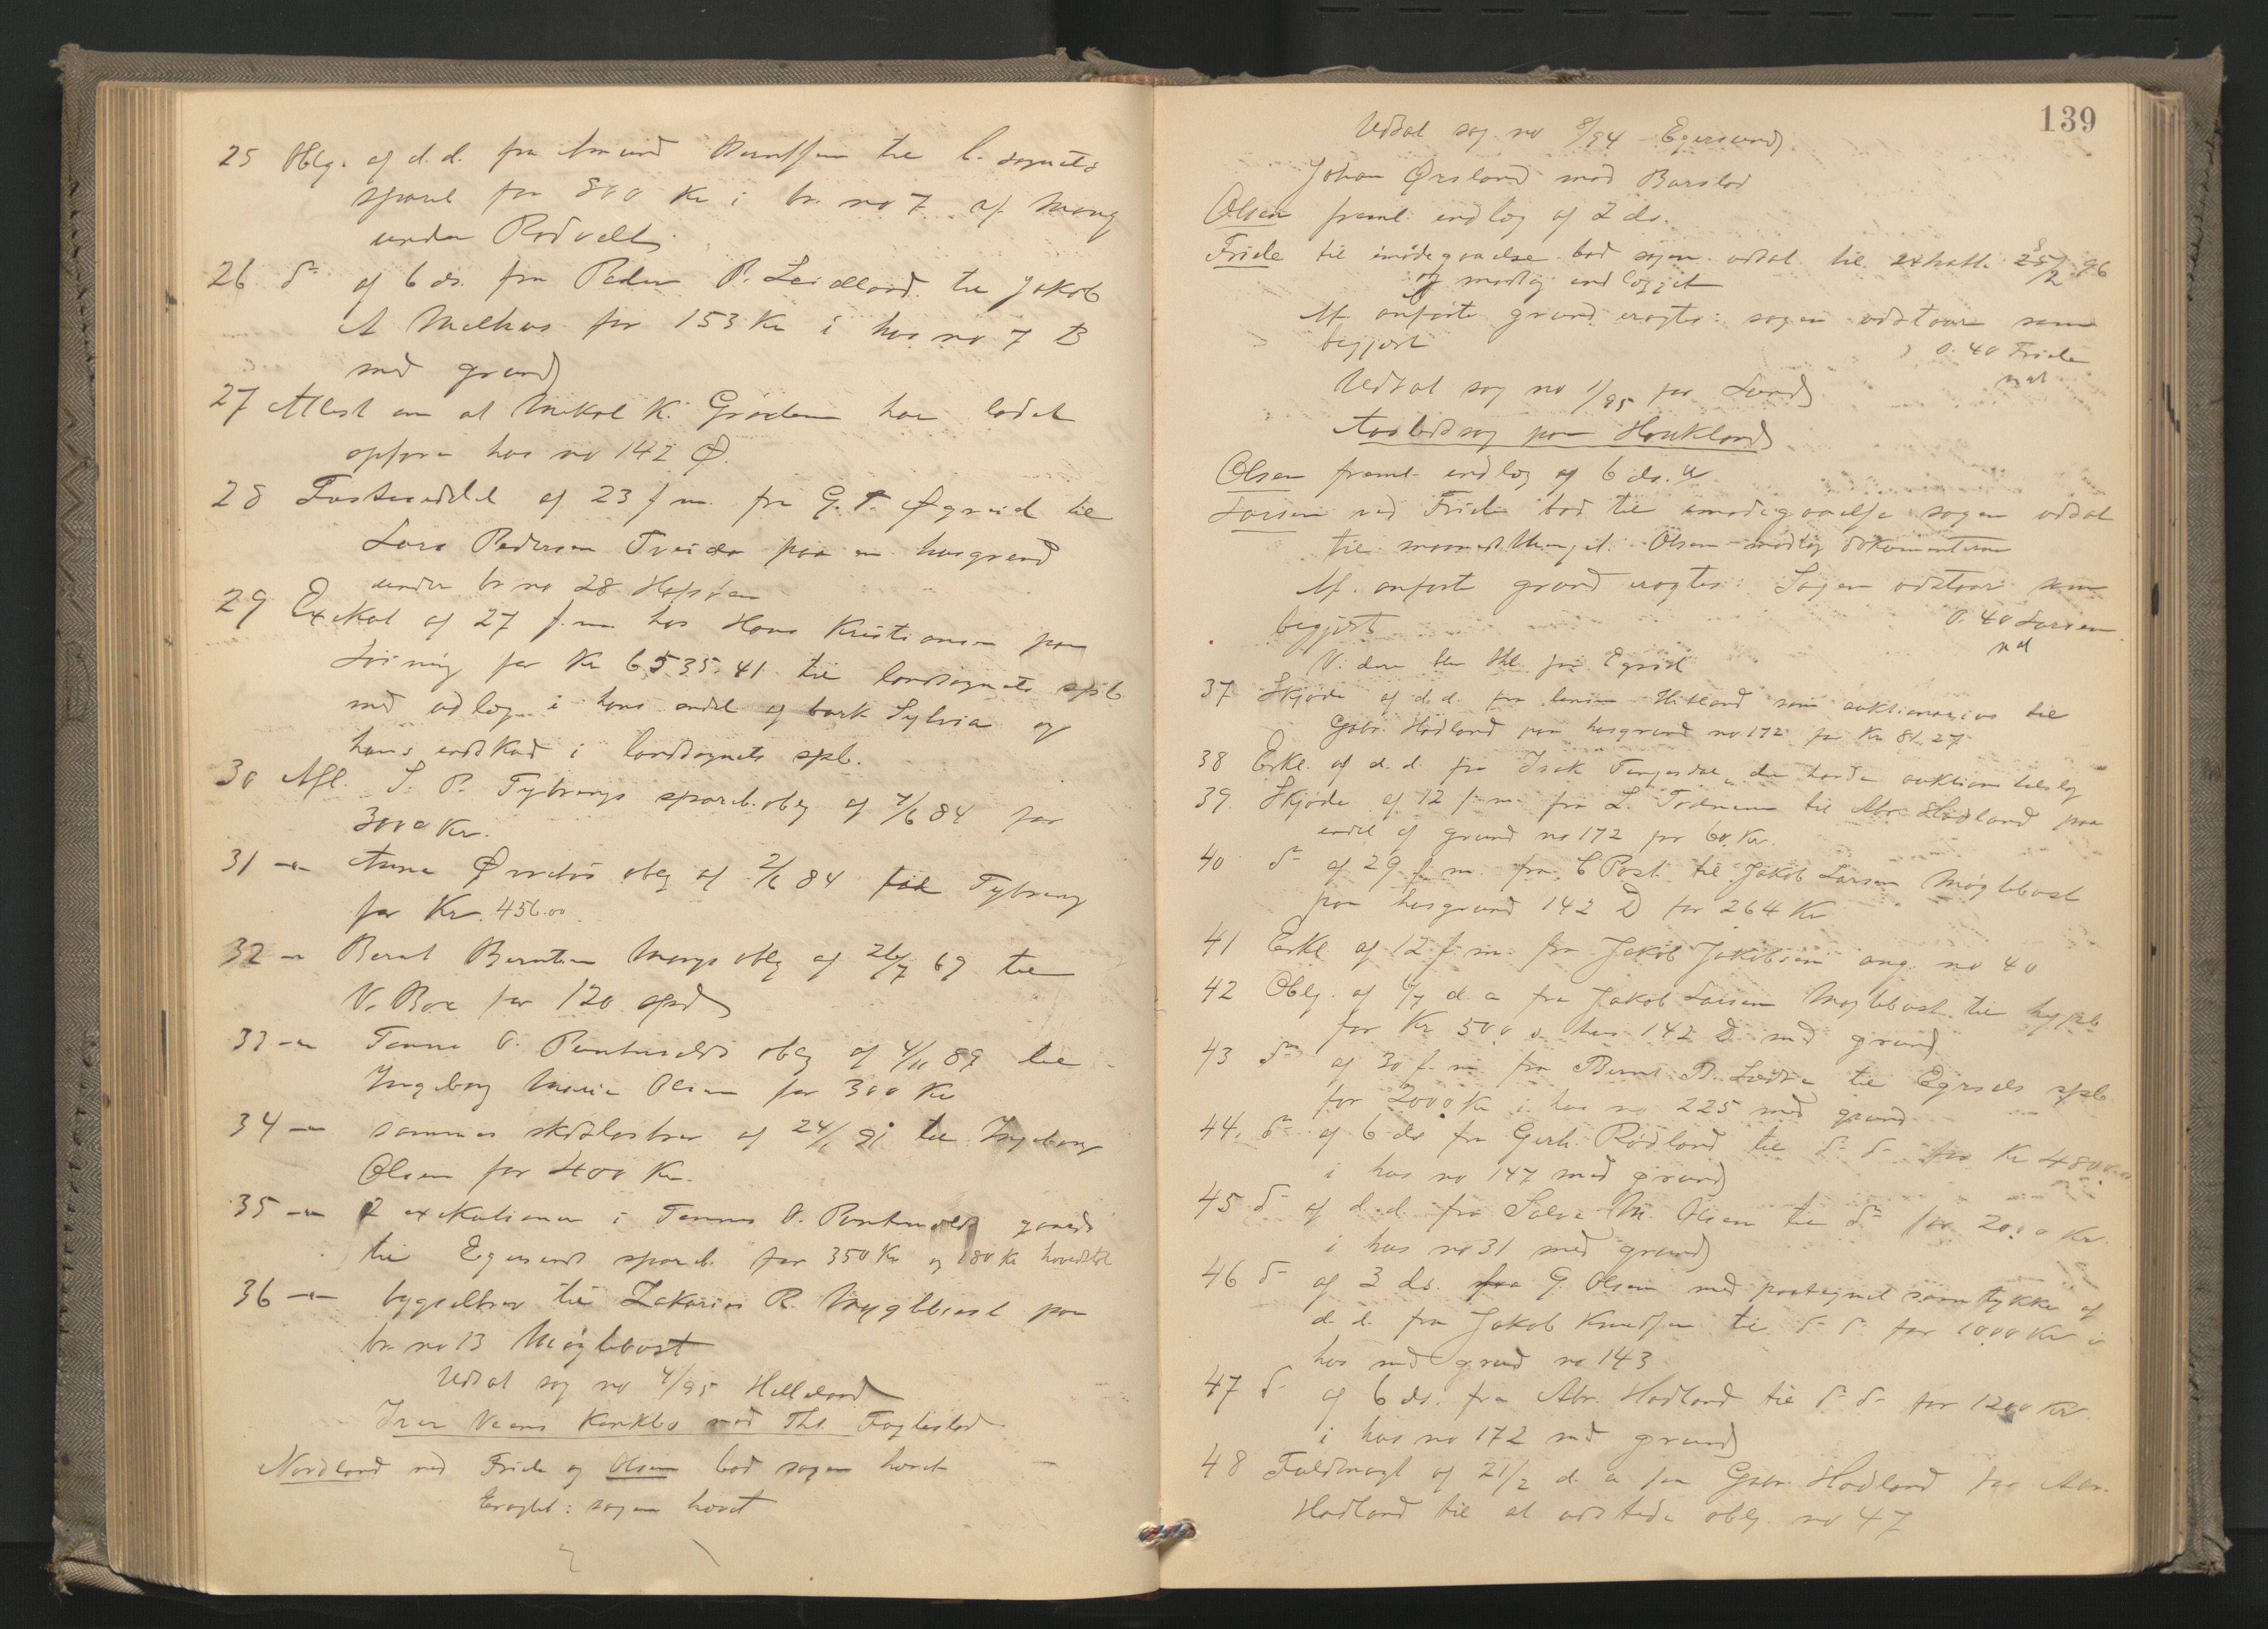 25 Oblg. af d.d. fra Amund Berntsen til l. sognets
spareb for 800 Kr i br. no 7 af Mong
under Rodvelt
26 do af 6 ds. fra Peder P. Leidland til Jakob
A Melhus for 153 Kr i hus no 7 B
med grund
27 Attest om at Mikal K. Grødem har ladet
opføre hus no 142 Ø.
28 Festeseddel af 23 f.m. fra G. T. Øgreid til
Lars Pedersen Tveida paa en husgrund
under br no 28 Hafsøen
29 Exekut af 27 f.m. hos Hans Kristiansen paa
for Kr 6535.41 til landsognets spb
med udlæg i hans andel af bark Sylvia og
hans indskud i landsognets spb.
30 Afl. S. P. Tybrings spareb. oblg af 7/6 84 for
3000 Kr.
31 -"- Anna oblg af 2/6 84 til Tybring
for Kr. 456.00
32 -"- Bernt Berntsen Mongs oblg af 26/7 69 til
V. Boe for 120 spd
33 -"- Tønnes O. Puntervolds oblg af 4/11 89 til
Ingeborg Marie Olsen for 300 Kr
34 -"- sammes skadesløsbrev af 24/1 91 til Ingeborg
Olsen for 400 Kr.
35 -"- 2 exekutioner i Tønnes O. Puntervolds gaard
til Egersunds spareb. for 350 Kr og 180 Kr hovedstol
36 -"- bygselbrev til Zakarias R. Møglebust paa
br. no 13 Møglebost
Udsat sag no 4/95 Helleland
Iver Veens Konkbo mod Ths. Fuglestad
Nordland ved Feide og Olsen bad sagen hævet
Eragtet: sagen hævet
139
Udsat sag no 8/94 Egersund
Johan Ørsland mod Barstad
Olsen freml. indlæg af 2 ds.
Feide til imødegaaelse bad sagen udsat til 25/2 96
og modtog indlægget
Af anførte grund eragtes: sagen udstaar som
begjært
0.40 Feide
Udsat sag no 1/95 for Lund
Aastedssag paa Haukland
Olsen freml. indlæg af 6 ds.
Larsen ved Feide bad til imødegaaelse sagen udsat
til maanedsthinget. Olsen modtog dokumenterne
Af anførte grund eragtes: Sagen udstaar som
begjært
0.40 Larsen
37 Skjøde af d.d. fra Hetland som auktionarius til
Gabr. Hadland paa husgrund no 172 for Kr 81.27
38 Erkl. af d.d. fra Isak Tengesdal, der havde auktionstilslag
39 Skjøde af 12 f.m. fra L. Tednem til Abr. Hadland paa
endel af grund no 172 for 60 Kr.
40 do af 29 f.m. fra C Post til Jakob Larsen Møglebost
paa husgrund 142 D for 264 Kr
41 Erkl af 12 f.m. fra Jakob Jakobsen ang. no 40
42 Oblg. af 6/7 d.a fra Jakob Larsen Møglebost til hypb
for Kr 500 i hus 142 D med grund
43 do af 30 f.m fra Bernt B. til Egrsds spb
for 2000 Kr i hus no 225 med grund
44. do af 6 ds fra Gerh. Rødland til do do for Kr 4800.00
i hus no 147 med grund
45 do af d.d. fra Salve M. Olsen til do for 2000 Kr.
i hus no 31 med grund
46 do af 3 ds. fra G. Olsen med paategnet samtykke af
d.d. fra Jakob Knudsen til do do for 1000 Kr i
hus med grund no 143
47 do af 6 ds. fra Abr. Hadland til do do for 1200 Kr.
i hus no 172 med grund
48 Fuldmagt af 21/2 d.a fra Gabr. Hadland for Abr.
Hadland til at udstede oblg. no 47